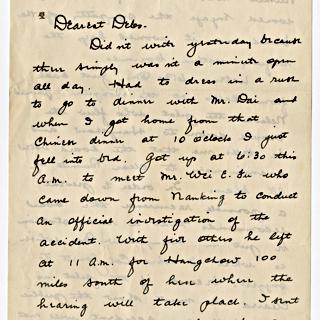 Dearest Debs.
Didn't write yesterday because
there simply wasn't a minute open
all day. Had to dress in a rush
to go to dinner with Mr. Dai and
when I got home from that
Chinese dinner at 10 o'clock I just
fell into bed. Got up at 6:30 this
A.M. to meet Mr. Wei E. Su who
came down from Nanking to conduct
an official investigation of the
accident. With five others he left
at 11 A.M. for Hangchow 100
miles south of here where the
hearing will take place. I sent